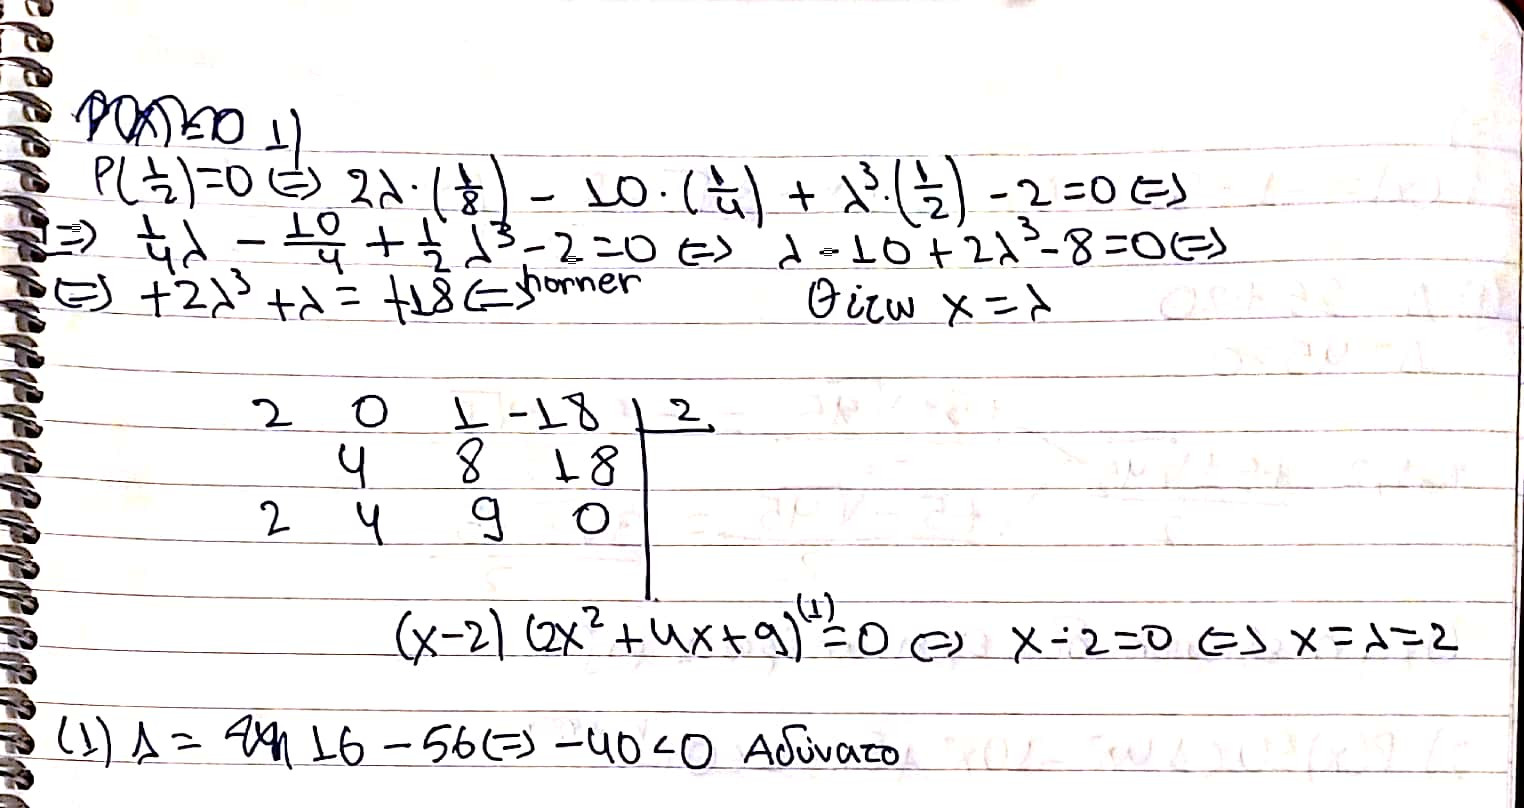 1)
P(1/2)=0 ⇔ 2λ·(1/8) - 10·(1/4) + λ³·(1/2) - 2 = 0 ⇔
⇔ 1/4 λ - 10/4 + 1/2 λ³ - 2 = 0 ⇔ λ - 10 + 2λ³ - 8 = 0 ⇔
⇔ +2λ³ + λ = +18 ⇔ horner Θέτω x = λ
2 0 1 -18 | 2
4 8 18
2 4 9 0
(x-2)(2x² + 4x + 9)⁽¹⁾ = 0 ⇔ x - 2 = 0 ⇔ x = λ = 2
(1) Δ = 16 - 56 ⇔ -40 < 0 Αδύνατο